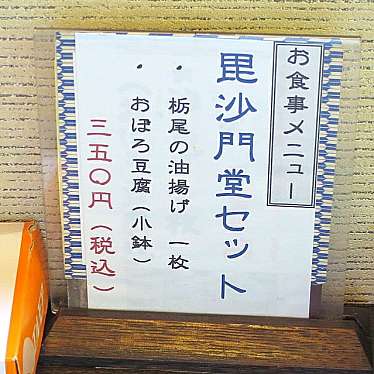 お食事メニュー
毘沙門堂セット
・栃尾の油揚げ 一枚
・おぼろ豆腐（小鉢）
三五〇円（税込）